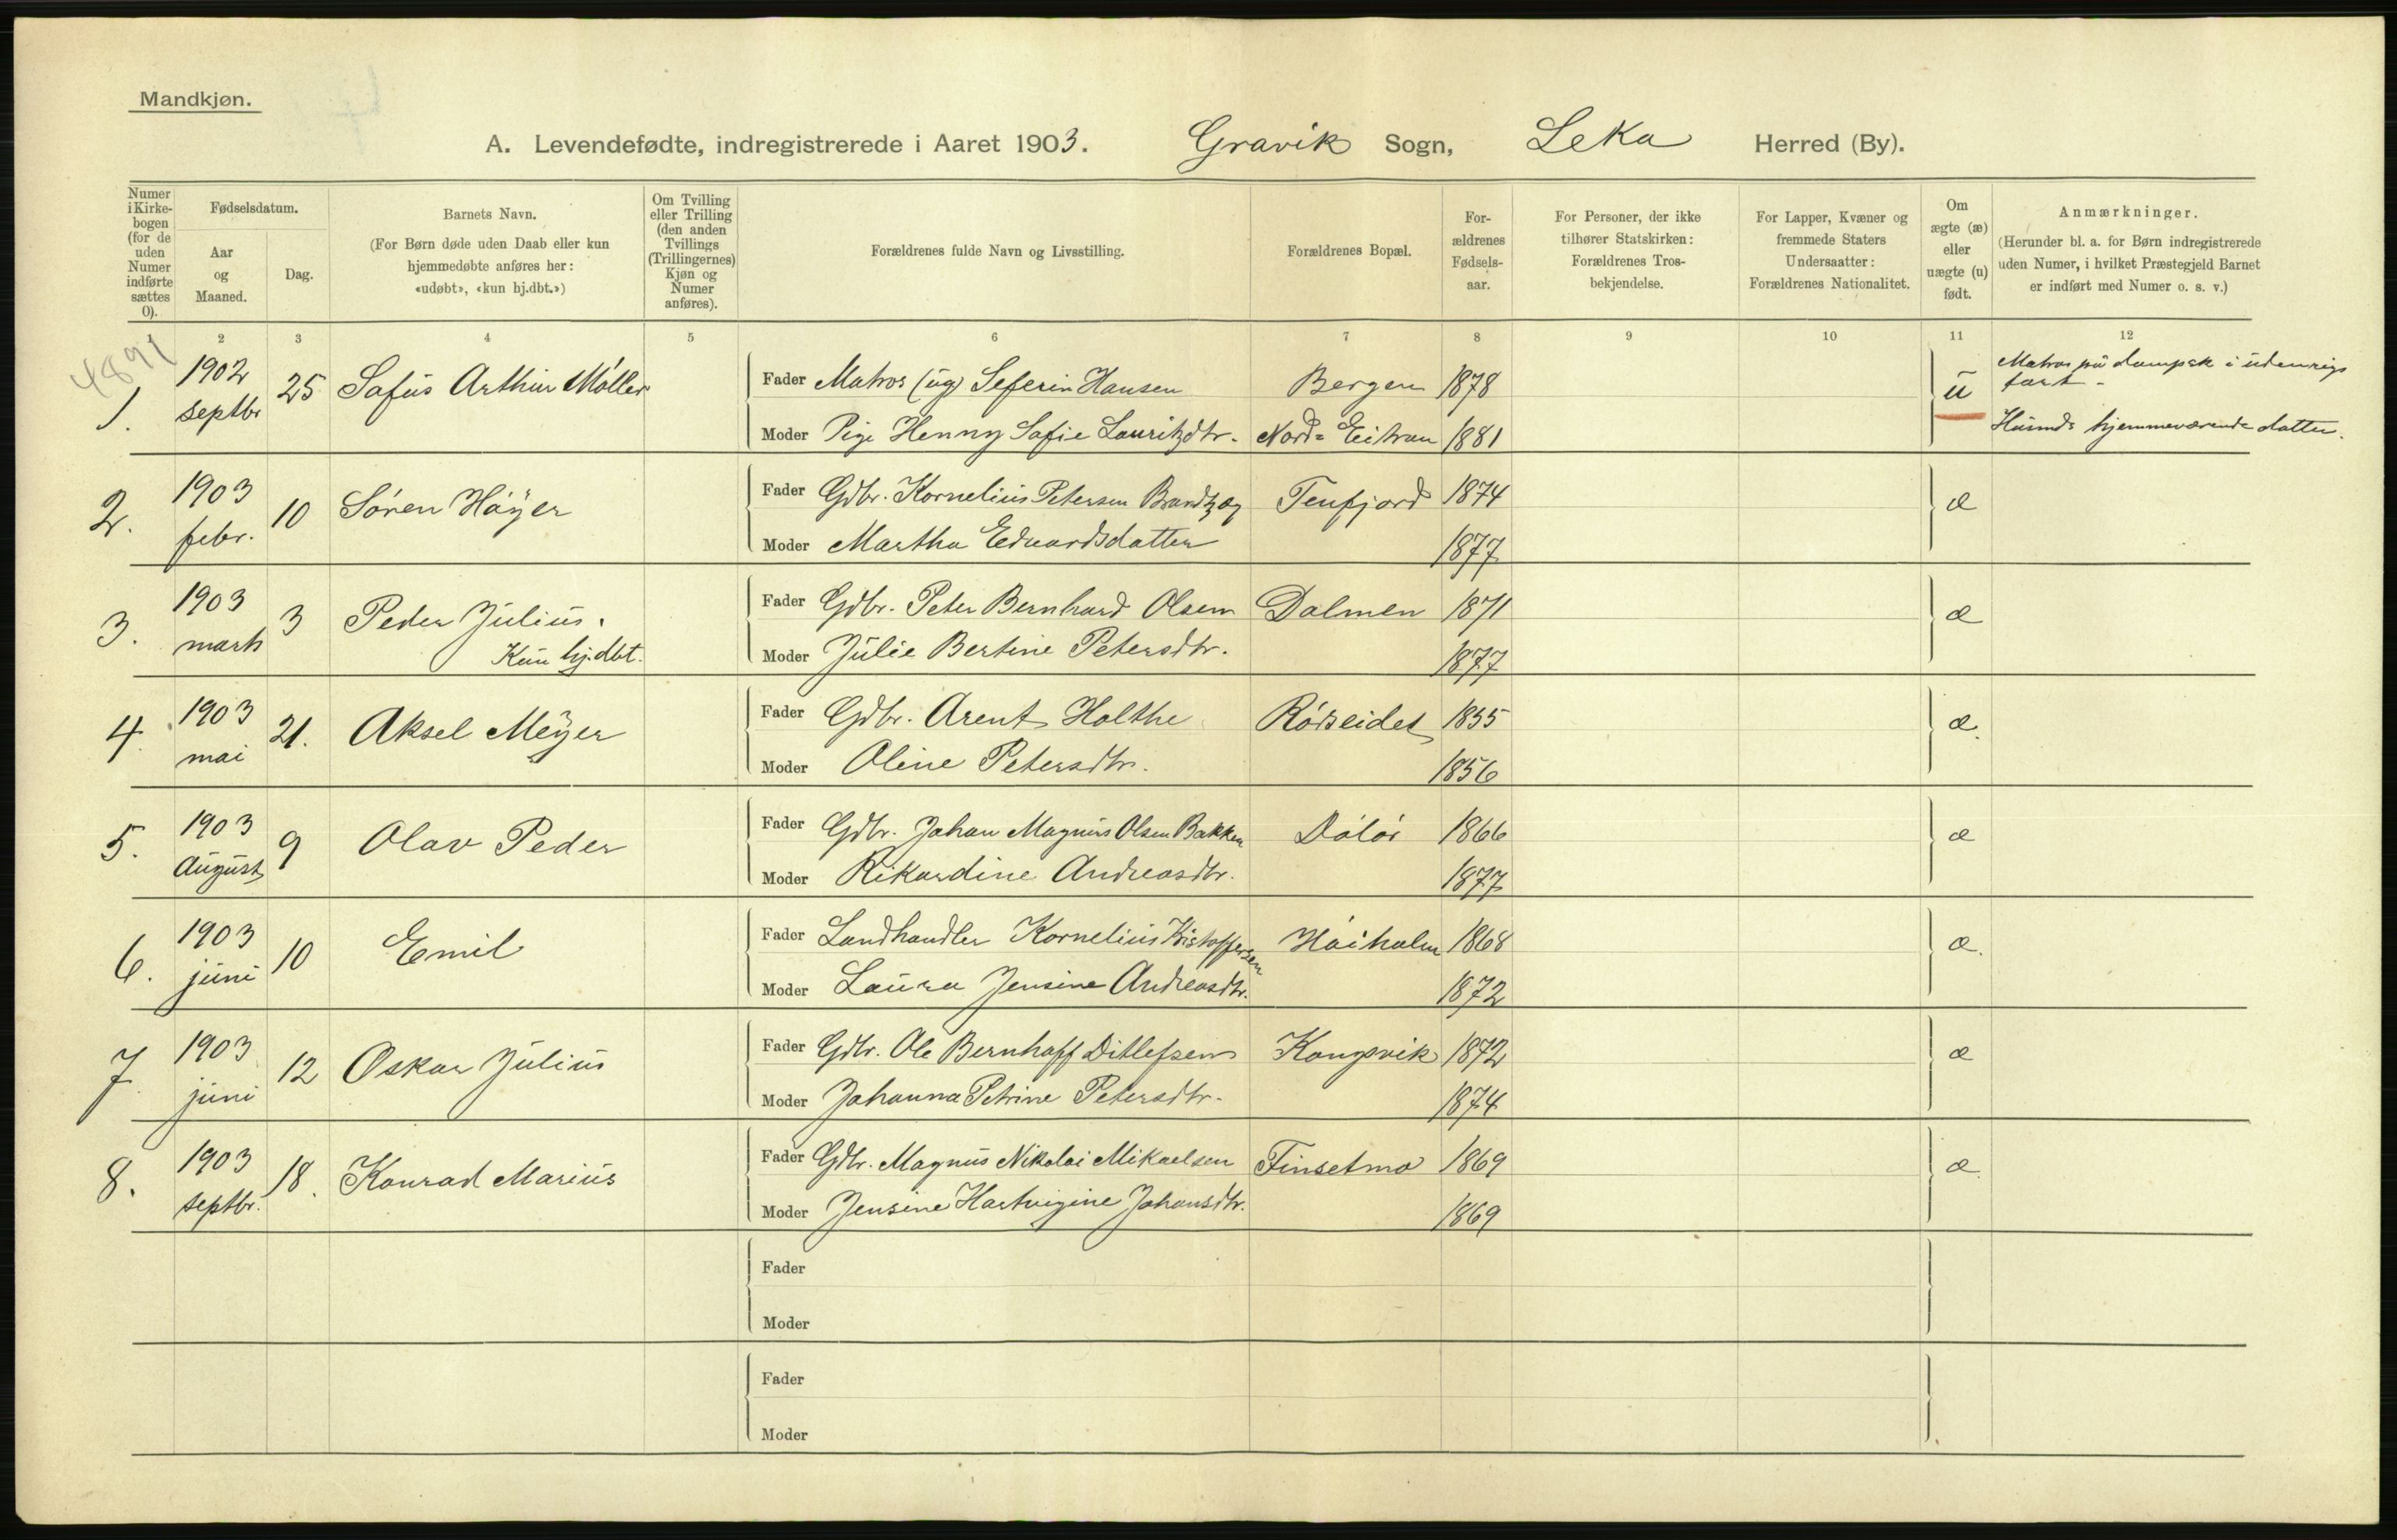 Mandkjøn.
A. Levendefødte, indregistrerede i Aaret 1903. Gravik Sogn, Leka Herred (By).
Numer i Kirke-bogen (for de uden Numer indførte sættes 0).
Fødselsdatum.
Aar og Maaned.
Dag.
Barnets Navn.
(For Børn døde uden Daab eller kun hjemmedøbte anføres her: «udøbt», «kun hj.dbt.»)
Om Tvilling eller Trilling (den anden Tvillings (Trillingernes) Kjøn og Numer anføres).
Forældrenes fulde Navn og Livsstilling.
Forældrenes Bopæl.
For-ældrenes Fødsels-aar.
For Personer, der ikke tilhører Statskirken: Forældrenes Tros-bekjendelse.
For Lapper, Kvæner og fremmede Staters Undersaatter: Forældrenes Nationalitet.
Om ægte (æ) eller uægte (u) født.
Anmærkninger.
(Herunder bl. a. for Børn indregistrerede uden Numer, i hvilket Præstegjeld Barnet er indført med Numer o. s. v.)
1 2 3 4 5 6 7 8 9 10 11 12
4891
1. 1902 septbr 25 Sofus Arthur Møller
Fader Matros (ug) Seferin Hansen Bergen 1878 u Matros på dampsk i udenrigs fart -
Moder Pige Henny Sofie Lauritzdtr. Nord= Eitran 1881 Husmds hjemmeværende datter.
2. 1903 febr. 10 Sören Höyer
Fader Gdbr. Kornelius Petersen Brandtzæg Tenfjord 1874 æ
Moder Martha Eduardsdatter 1877
3. 1903 marts 3 Peder Julius.
Kun hj.dbt.
Fader Gdbr. Peter Bernhard Olsen Dalmen 1871 æ
Moder Julie Bertine Petersdtr. 1877
4 1903 mai 21. Aksel Meyer
Fader Gdbr. Arent Holthe Rörseidet 1855 æ.
Moder Oline Petersdtr. 1856
5. 1903 August 9 Olav Peder
Fader Gdbr. Johan Magnus Olsen Bakken Dölör 1866 æ
Moder Rikardine Andreasdtr. 1877
6. 1903 juni 10 Emil
Fader Landhandler Kornelius Kristoffersen Höiholm 1868 æ.
Moder Laura Jensine Andreasdtr. 1872
7 1903 juni 12 Oskar Julius
Fader Gdbr. Ole Bernhoff Ditlefsen Kongsvik 1872 æ
Moder Johanna Petrine Petersdtr. 1874
8. 1903 septbr. 18. Konrad Marius
Fader Gdbr. Magnus Nikolai Mikaelsen Finsetmo 1869 æ.
Moder Jensine Hartvigine Johansdtr. 1869
Fader
Moder
Fader
Moder